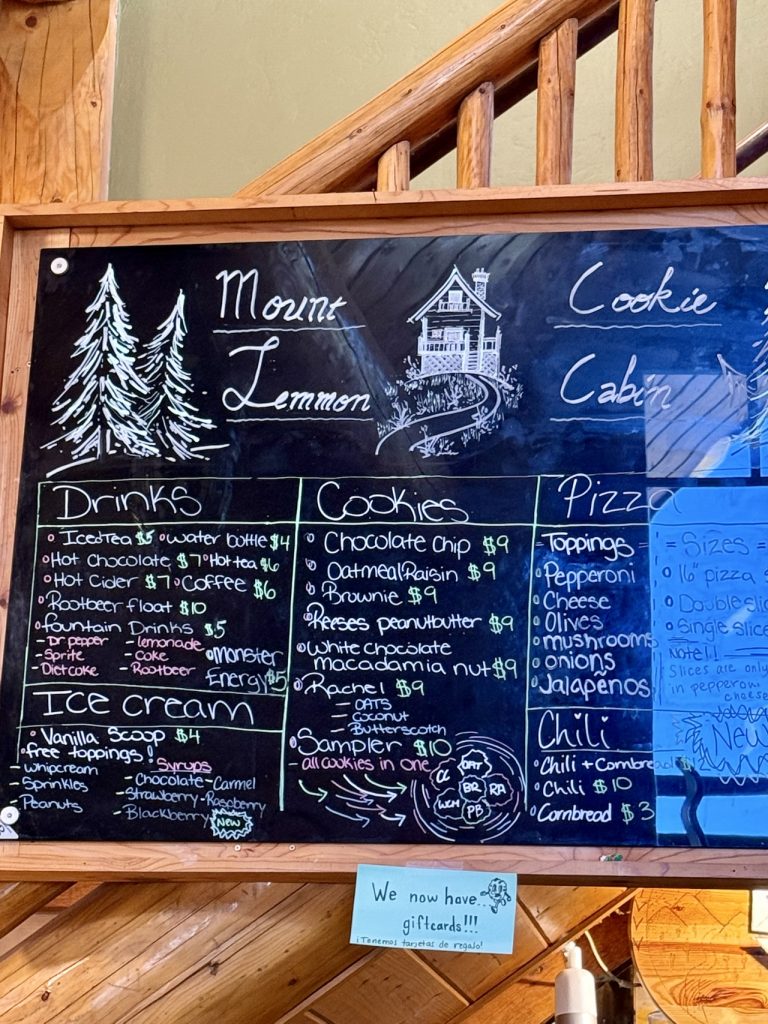 Mount
Lemmon
Cookie
Cabin
Drinks
Iced Tea $5 Water bottle $4
Hot Chocolate $7 Hot tea $6
Hot Cider $7 Coffee $6
Rootbeer float $10
fountain Drinks $5
- Dr pepper - lemonade
- Sprite - Coke
- Diet coke - Rootbeer
Monster
Energy $5
Ice cream
Vanilla Scoop $4
free toppings!
- whipcream
- Sprinkles
- Peanuts
Syrups
- Chocolate - Carmel
- Strawberry - Raspberry
- Blackberry New
Cookies
Chocolate chip $9
Oatmeal Raisin $9
Brownie $9
Reeses peanutbutter $9
White chocolate
macadamia nut $9
Rachel $9
- OATS
- Coconut
- Butterscotch
Sampler $10
- all cookies in one
CC OAT
BR RA
WCM PB
Pizza
- Toppings -
Pepperoni
Cheese
Olives
mushrooms
onions
Jalapeños
= Sizes =
16" pizza
Double slic
Single slice
Note!!
Slices are only
in pepperoni
cheese
New
Chili
Chili + Cornbread
Chili $10
Cornbread $3
We now have...
giftcards!!!
¡Tenemos tarjetas de regalo!